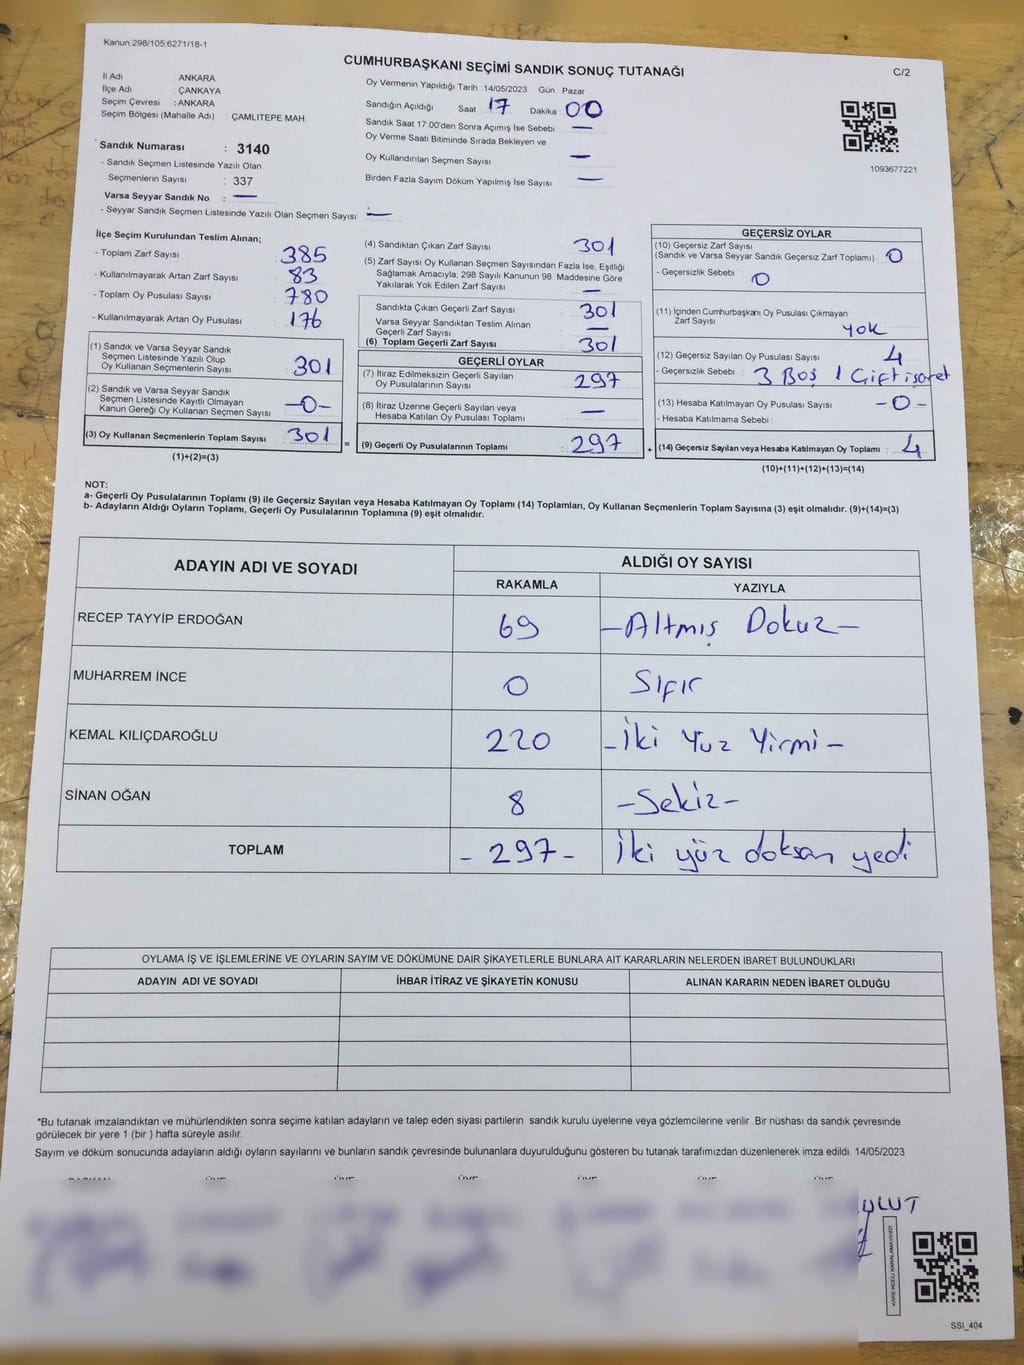 Kanun:298/105;6271/18-1
CUMHURBAŞKANI SEÇİMİ SANDIK SONUÇ TUTANAĞI
C/2
İl Adı ANKARA
İlçe Adı ÇANKAYA
Seçim Çevresi : ANKARA
Seçim Bölgesi (Mahalle Adı) : ÇAMLITEPE MAH.
Sandık Numarası : 3140
- Sandık Seçmen Listesinde Yazılı Olan
Seçmenlerin Sayısı : 337
Varsa Seyyar Sandık No : —
- Seyyar Sandık Seçmen Listesinde Yazılı Olan Seçmen Sayısı: —
Oy Vermenin Yapıldığı Tarih 14/05/2023 Gün Pazar
Sandığın Açıldığı Saat 17 Dakika 00
Sandık Saat 17:00'den Sonra Açımış İse Sebebi —
Oy Verme Saati Bitiminde Sırada Bekleyen ve
Oy Kullandırılan Seçmen Sayısı —
Birden Fazla Sayım Döküm Yapılmış İse Sayısı —
1093677221
İlçe Seçim Kurulundan Teslim Alınan;
- Toplam Zarf Sayısı : 385
- Kullanılmayarak Artan Zarf Sayısı : 83
- Toplam Oy Pusulası Sayısı : 780
- Kullanılmayarak Artan Oy Pusulası : 176
(1) Sandık ve Varsa Seyyar Sandık
Seçmen Listesinde Yazılı Olup
Oy Kullanan Seçmenlerin Sayısı 301
(2) Sandık ve Varsa Seyyar Sandık
Seçmen Listesinde Kayıtlı Olmayan
Kanun Gereği Oy Kullanan Seçmen Sayısı -0-
(3) Oy Kullanan Seçmenlerin Toplam Sayısı 301
(1)+(2)=(3)
(4) Sandıktan Çıkan Zarf Sayısı 301
(5) Zarf Sayısı Oy Kullanan Seçmen Sayısından Fazla İse, Eşitliği
Sağlamak Amacıyla; 298 Sayılı Kanunun 98. Maddesine Göre
Yakılarak Yok Edilen Zarf Sayısı —
Sandıkta Çıkan Geçerli Zarf Sayısı 301
Varsa Seyyar Sandıktan Teslim Alınan
Geçerli Zarf Sayısı —
(6) Toplam Geçerli Zarf Sayısı 301
GEÇERLİ OYLAR
(7) İtiraz Edilmeksizin Geçerli Sayılan
Oy Pusulalarının Sayısı 297
(8) İtiraz Üzerine Geçerli Sayılan veya
Hesaba Katılan Oy Pusulası Toplamı —
= (9) Geçerli Oy Pusulalarının Toplamı : 297
GEÇERSİZ OYLAR
(10) Geçersiz Zarf Sayısı
(Sandık ve Varsa Seyyar Sandık Geçersiz Zarf Toplamı) : 0
- Geçersizlik Sebebi : 0
(11) İçinden Cumhurbaşkanı Oy Pusulası Çıkmayan
Zarf Sayısı YOK
(12) Geçersiz Sayılan Oy Pusulası Sayısı 4
- Geçersizlik Sebebi : 3 Boş 1 Çift işaret
(13) Hesaba Katılmayan Oy Pusulası Sayısı -0-
- Hesaba Katılmama Sebebi :
+ (14) Geçersiz Sayılan veya Hesaba Katılmayan Oy Toplamı : 4
(10)+(11)+(12)+(13)=(14)
NOT:
a- Geçerli Oy Pusulalarının Toplamı (9) ile Geçersiz Sayılan veya Hesaba Katılmayan Oy Toplamı (14) Toplamları, Oy Kullanan Seçmenlerin Toplam Sayısına (3) eşit olmalıdır. (9)+(14)=(3)
b- Adayların Aldığı Oyların Toplamı, Geçerli Oy Pusulalarının Toplamına (9) eşit olmalıdır.
ADAYIN ADI VE SOYADI ALDIĞI OY SAYISI
RAKAMLA YAZIYLA
RECEP TAYYİP ERDOĞAN 69 -Altmış Dokuz-
MUHARREM İNCE 0 Sıfır
KEMAL KILIÇDAROĞLU 220 -İki Yüz Yirmi-
SİNAN OĞAN 8 -Sekiz-
TOPLAM -297- İki yüz doksan yedi
OYLAMA İŞ VE İŞLEMLERİNE VE OYLARIN SAYIM VE DÖKÜMÜNE DAİR ŞİKAYETLERLE BUNLARA AİT KARARLARIN NELERDEN İBARET BULUNDUKLARI
ADAYIN ADI VE SOYADI İHBAR İTİRAZ VE ŞİKAYETİN KONUSU ALINAN KARARIN NEDEN İBARET OLDUĞU
*Bu tutanak imzalandıktan ve mühürlendikten sonra seçime katılan adayların ve talep eden siyasi partilerin sandık kurulu üyelerine veya gözlemcilerine verilir. Bir nüshası da sandık çevresinde
görülecek bir yere 1 (bir ) hafta süreyle asılır.
Sayım ve döküm sonucunda adayların aldığı oyların sayılarını ve bunların sandık çevresinde bulunanlara duyurulduğunu gösteren bu tutanak tarafımızdan düzenlenerek imza edildi. 14/05/2023
ULUT
KARE KODU KARALAMAYINIZ!
SSI_404